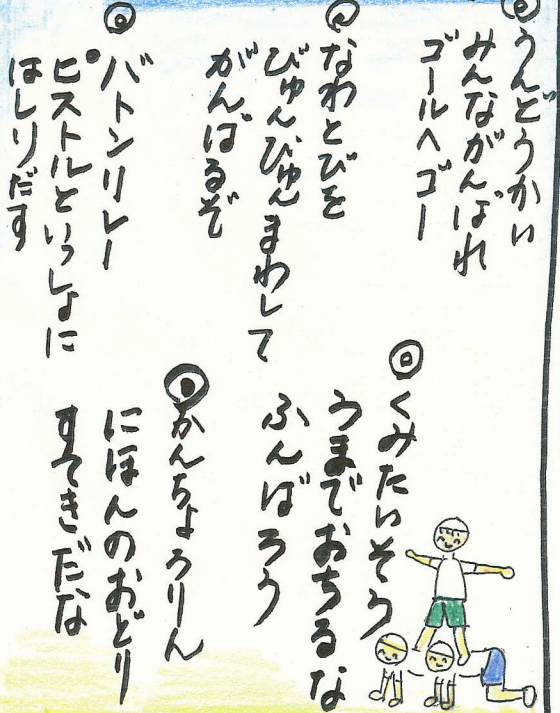 うんどうかい
みんながんばれ
ゴールへゴー
なわとびを
びゅんびゅんまわして
がんばるぞ
バトンリレー
ピストルといっしょに
はしりだす
くみたいそう
うまでおちるな
ふんばろう
かんちょろりん
にほんのおどり
すてきだな